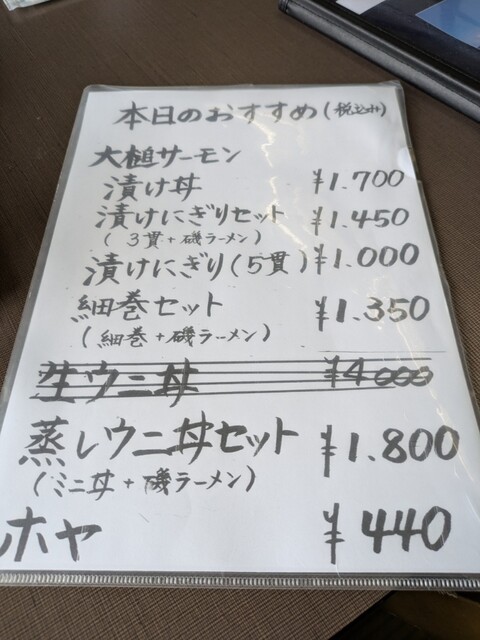 本日のおすすめ(税込み)
大槌サーモン
漬け丼 ¥1.700
漬けにぎりセット ¥1.450
(3貫+磯ラーメン)
漬けにぎり(5貫) ¥1.000
細巻セット ¥1.350
(細巻+磯ラーメン)
生ウニ丼 ¥4000
蒸しウニ丼セット ¥1.800
(ミニ丼+磯ラーメン)
ホヤ ¥440